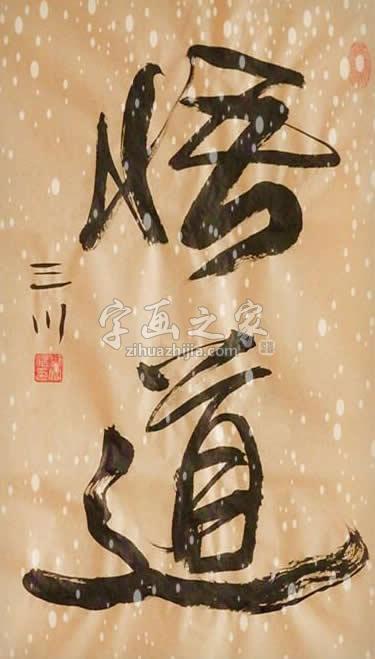 悟道
三川
字画之家
zihuazhijia.com